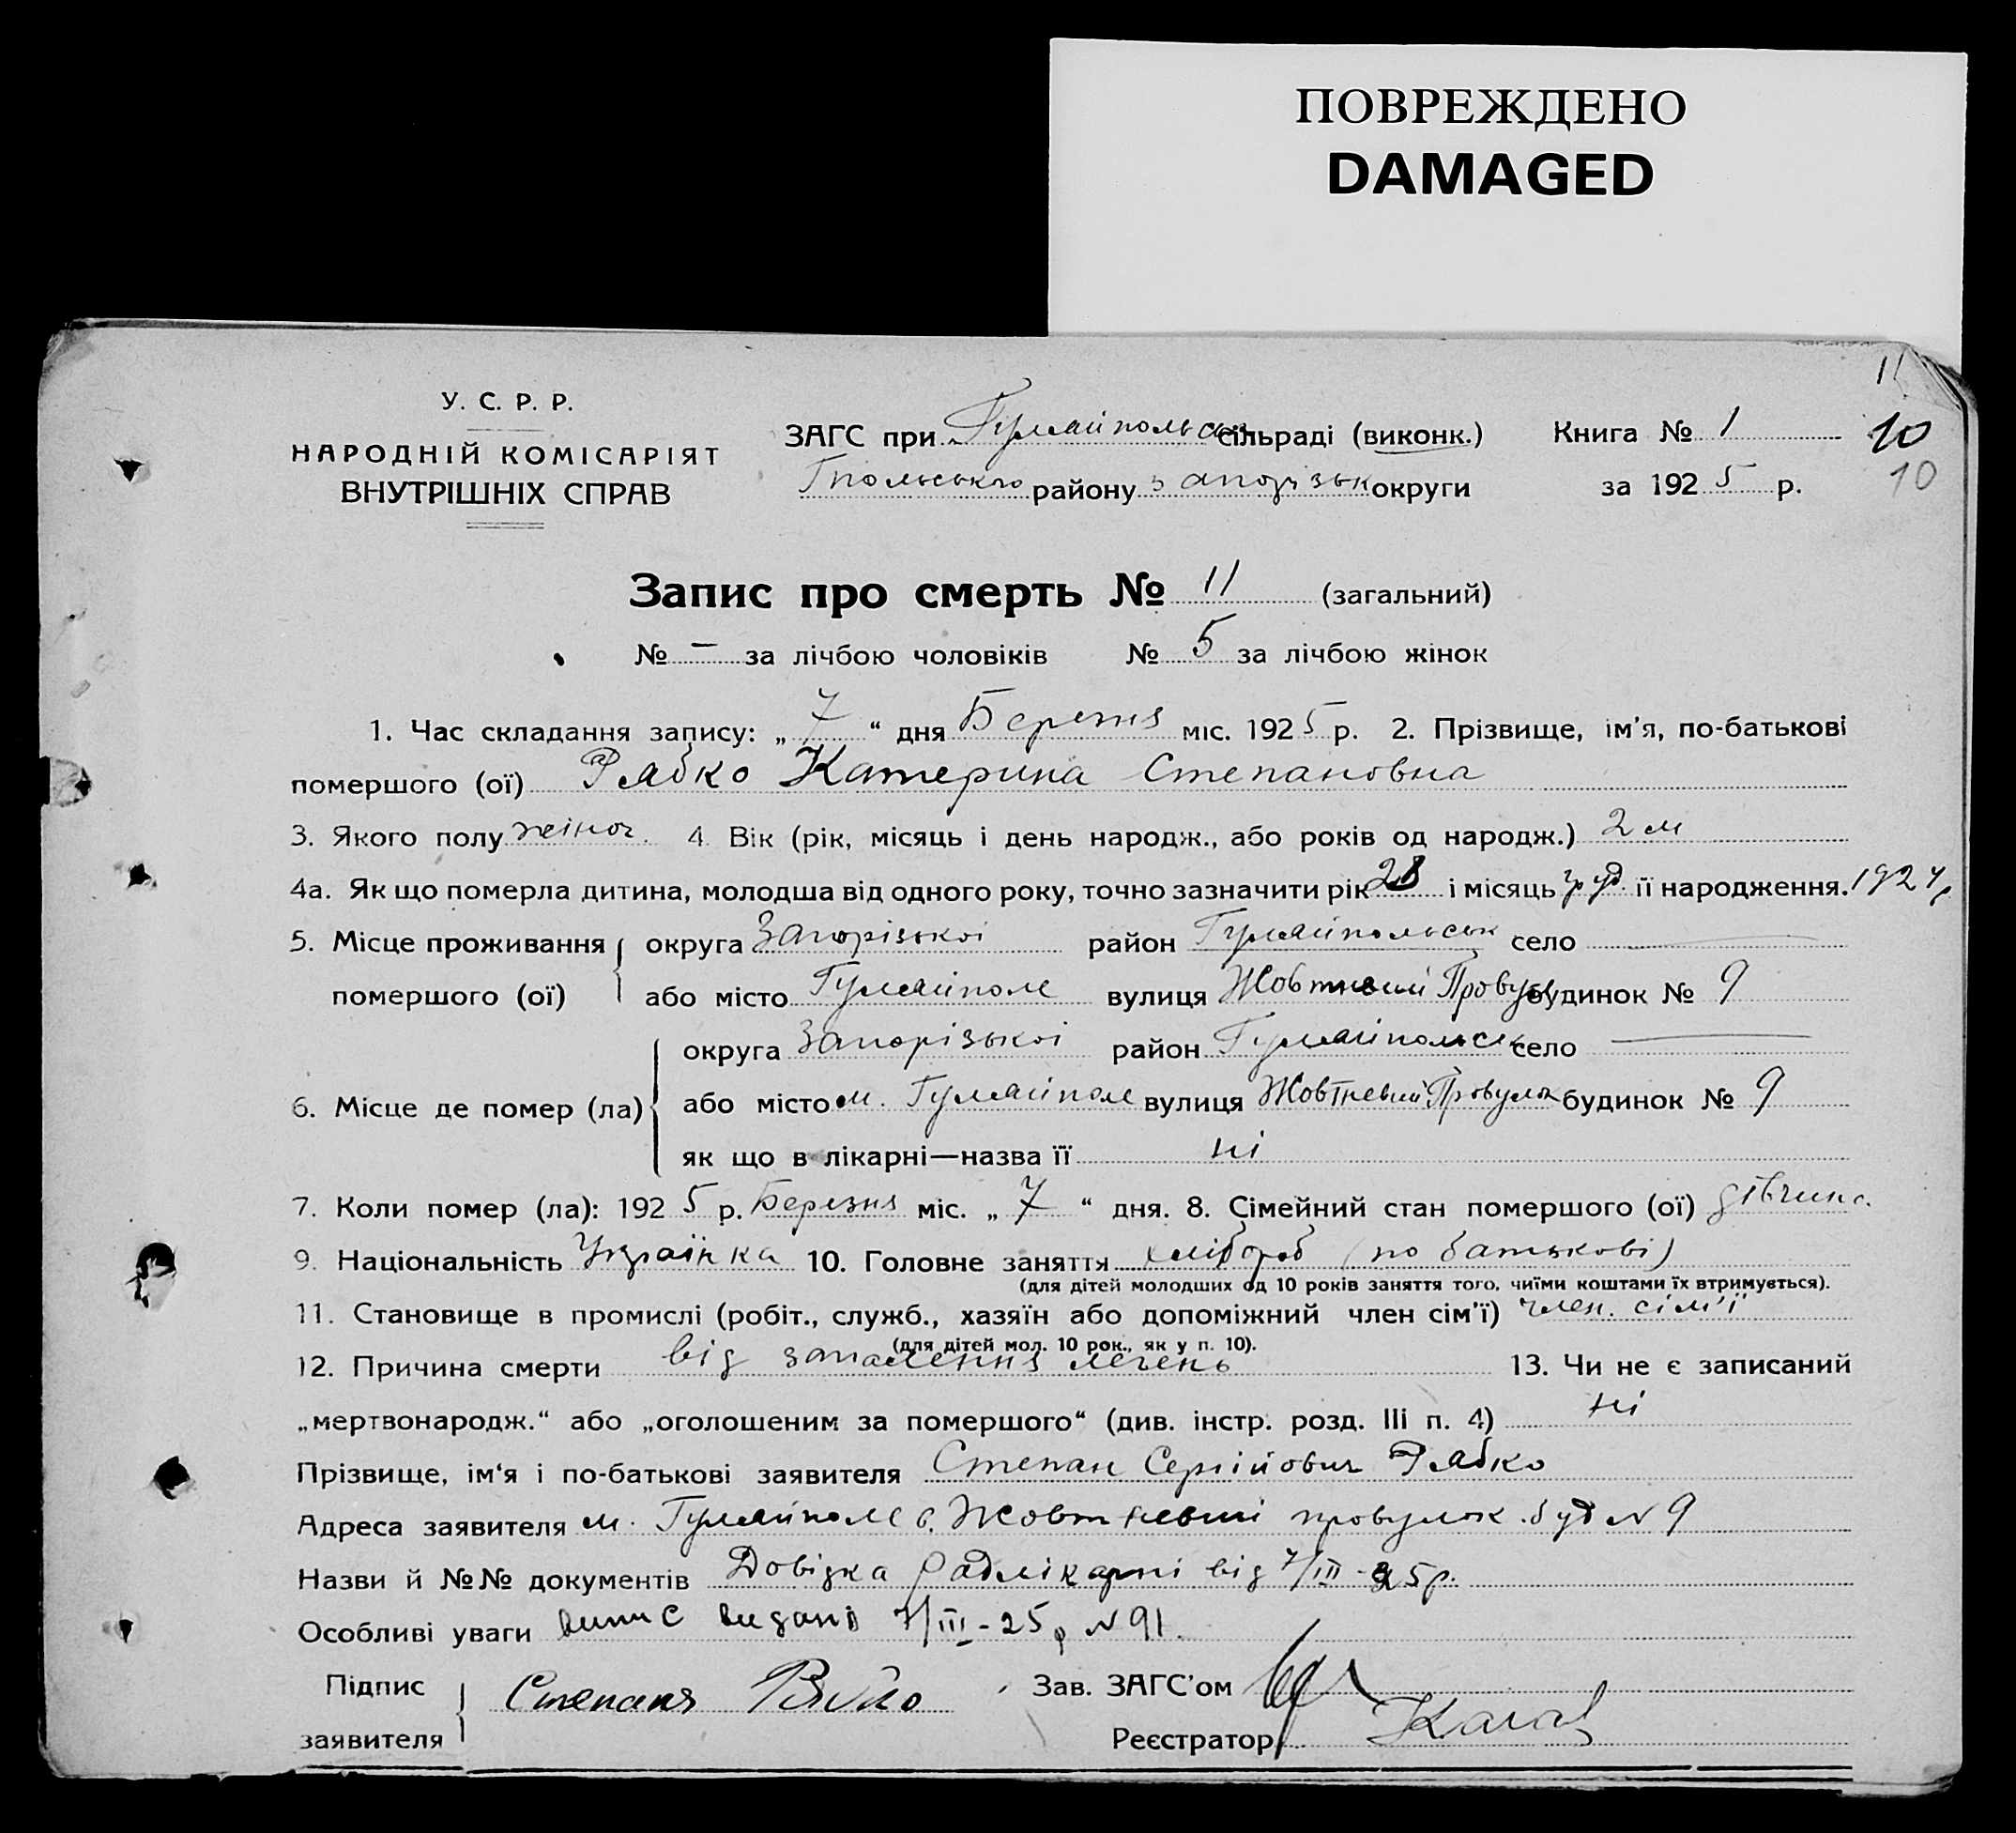 ПОВРЕЖДЕНО
DAMAGED
11
У. С. Р. Р.
НАРОДНІЙ КОМІСАРІЯТ
ВНУТРІШНІХ СПРАВ
ЗАГС при Гуляйпольськ сільраді (виконк.)
Гпольського району Запорізьк округи
Книга № 1
за 1925 р.
10
10
Запис про смерть № 11 (загальний)
№ — за лічбою чоловіків № 5 за лічбою жінок
1. Час складання запису: „ 7 “ дня Березня міс. 1925 р. 2. Прізвище, ім'я, по-батькові
помершого (ої) Рябко Катерина Степановна
3. Якого полу жіноч. 4 Вік (рік, місяць і день народж., або років од народж.) 2 м
4а. Як що померла дитина, молодша від одного року, точно зазначити рік 28 і місяць груд. її народження. 1924 р
5. Місце проживання помершого (ої) округа Запорізької район Гуляйпольськ село —
або місто Гуляйполе вулиця Жовтневий Провул будинок № 9
6. Місце де помер (ла) округа Запорізької район Гуляйпольськ село —
або місто м. Гуляйполе вулиця Жовтневий Провулок будинок № 9
як що в лікарні—назва її ні
7. Коли помер (ла): 1925 р. Березня міс. „ 7 “ дня. 8. Сімейний стан помершого (ої) дівчина
9. Національність Українка 10. Головне заняття хлібороб (по батькові)
(для дітей молодших од 10 років заняття того, чиїми коштами їх втримується).
11. Становище в промислі (робіт., служб., хазяїн або допоміжний член сім'ї) член. сім'ї
(для дітей мол. 10 рок., як у п. 10).
12. Причина смерти від запалення легень 13. Чи не є записаний
„мертвонародж.“ або „оголошеним за помершого“ (див. інстр. розд. III п. 4) ні
Прізвище, ім'я і по-батькові заявителя Степан Сергійович Рябко
Адреса заявителя м. Гуляйполе в. Жовтневий провулок буд N 9
Назви й №№ документів Довідка Радлікарні від 7/III-25 р.
Особливі уваги випис видано 7/III-25 р N 91.
Підпис заявителя Степанъ Рябко
Зав. ЗАГС'ом
Реєстратор